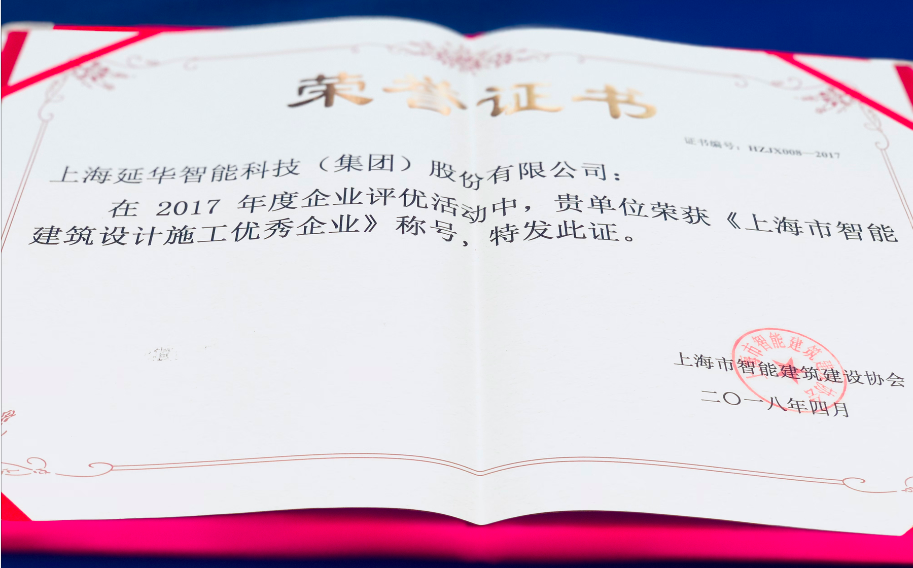 荣誉证书
证书编号：HZJX008—2017
上海延华智能科技（集团）股份有限公司：
在 2017 年度企业评优活动中，贵单位荣获《上海市智能
建筑设计施工优秀企业》称号，特发此证。
上海市智能建筑建设协会
二〇一八年四月